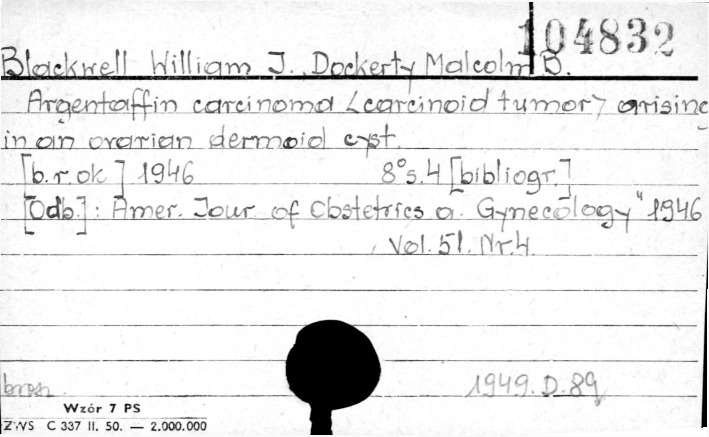 104832
Blackwell William J. Dockerty Malcolm B.
Argentaffin carcinoma <carcinoid tumor> arising
in an ovarian dermoid cyst.
[b.r.ok] 1946 8°s.4 [bibliogr.]
[Odb.]: Amer. Jour of Obstetrics a. Gynecology" 1946
Vol. 51. Nr.4.
brosz. 1949. D. 89
Wzór 7 PS
ZWS C 337 II. 50. — 2.000.000